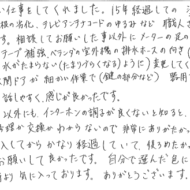 い仕事をしてくれました。15年経過しての
板の劣化。テレビアンテナコードのゆるみなど 職人
す。相談してお願いした事以外にメーターの見の
テープ補強、ベランダの室外機の排水ホースの付き
水がたまらない(たまりづらくなる)ように 変更してく
関ドアが 細かい作業で(鍵の部分など) 器用
話しやすく、感じが良かったです。
以外にも、インターホンの調子が良くないと知ると、
線か交換かわからないので 非常にありがたか
入してからかなり経過していて、使うのが
お願いして良かったです。自分で選んだ色に
より気に入っております。ありがとうございます。